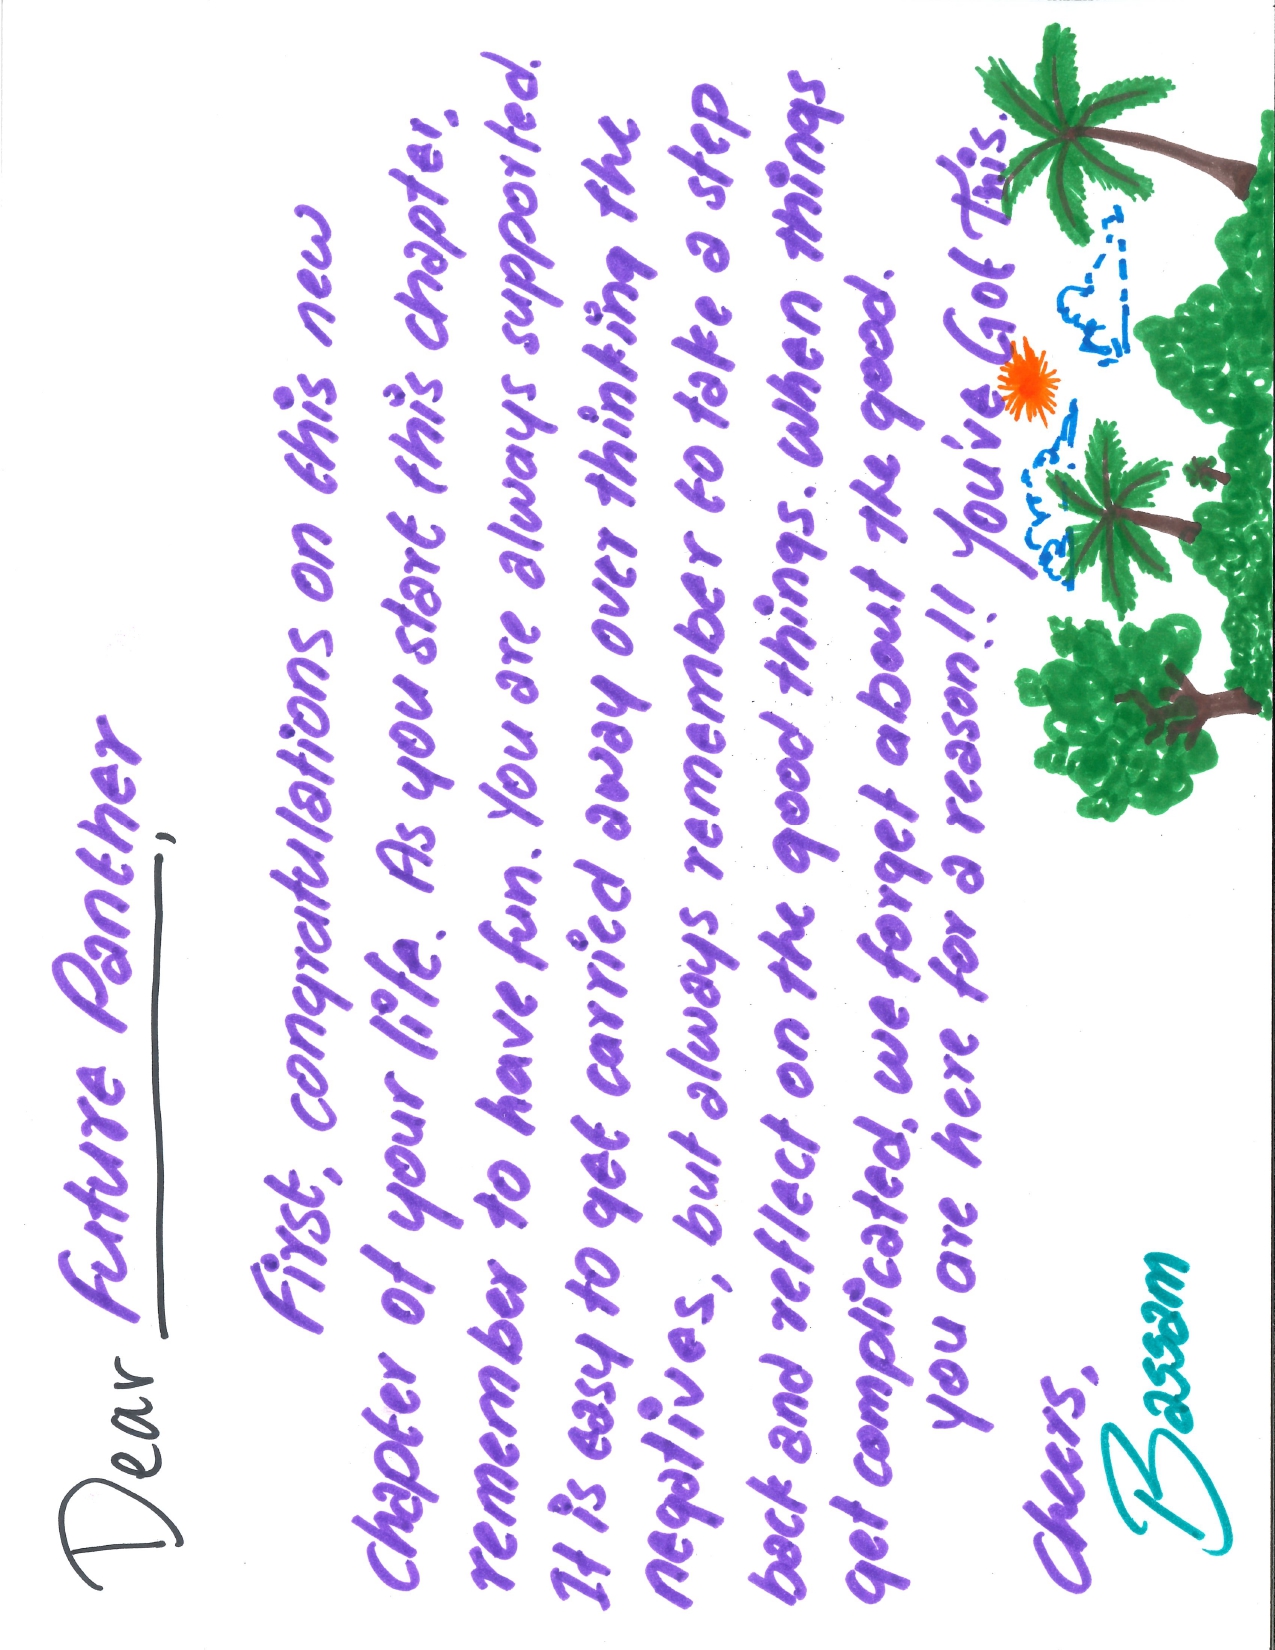 Dear Future Panther,
First, congratulations on this new
chapter of your life. As you start this chapter,
remember to have fun. You are always supported.
It is easy to get carried away over thinking the
negatives, but always remember to take a step
back and reflect on the good things. When things
get complicated, we forget about the good.
you are here for a reason!! You've Got This.
Cheers,
Bassam